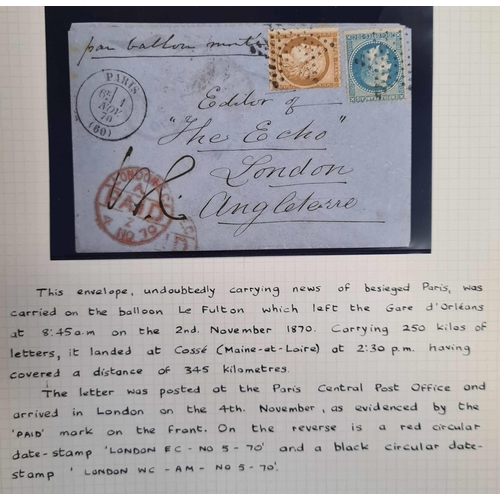 par ballon monté
PARIS
6E 1
NOV
70
(60)
Editor of
"The Echo"
London
Angleterre
LONDON
PAID
NO 70
This envelope, undoubtedly carrying news of besieged Paris, was
carried on the balloon Le Fulton which left the Gare d'Orléans
at 8:45 a.m on the 2nd. November 1870. Carrying 250 kilos of
letters, it landed at Cossé (Maine-et-Loire) at 2:30 p.m. having
covered a distance of 345 kilometres.
The letter was posted at the Paris Central Post Office and
arrived in London on the 4th. November, as evidenced by the
'PAID' mark on the front. On the reverse is a red circular
date-stamp 'LONDON EC - NO 5 - 70' and a black circular date-
stamp ' LONDON WC - AM - NO 5 - 70'.